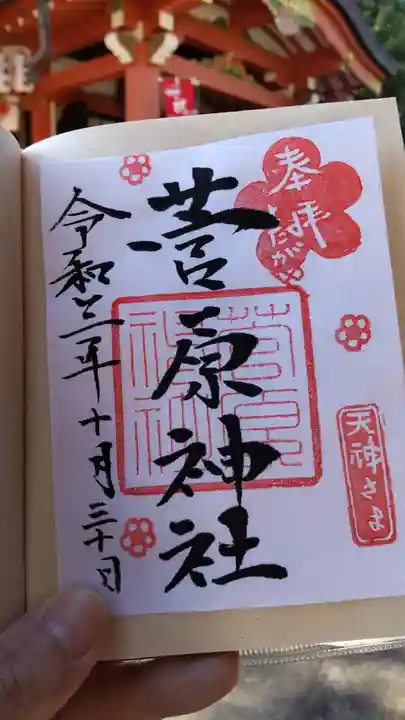 奉拝
菅原神社
令和三年十月三十日
天神さま
菅原
神社